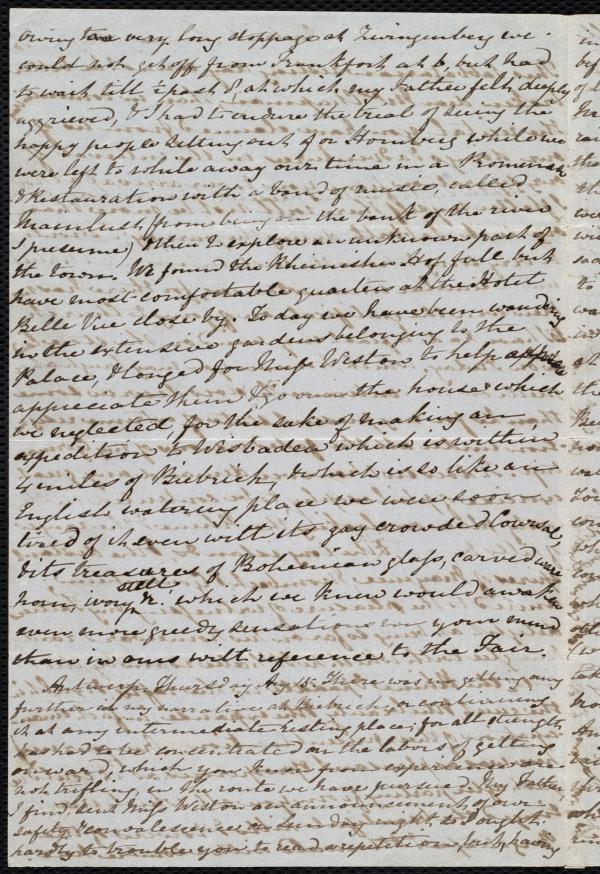 owing to a very long stoppage at Zwingenberg we
could not get off from Frankfort at 6, but had
to wait till ½ past 8, at which my Father felt deeply
aggrieved, & I had to endure the trial of seeing the
happy people setting out for Homburg while we
were left to while away our time in a
& Restauration with a band of music, called
Mainlust (from being on the bank of the river
I presume) & then to explore an unknown part of
the town. We found the Rheinisher Hof full, but
have most comfortable quarters at the Hotel
Belle Vue close by. Today we have been wandering
in the extensive gardens belonging to the
Palace, & longed for Miss Weston to help
appreciate them & go over the house which
we neglected for the sake of making an
expedition to Wisbaden which is within
4 miles of Biebrich, & which is so like an
English watering place we were soon
tired of it, even with its gay crowded Coursal,
& its treasures of Bohemian glass, carved
horn, ivory &c. which we knew would awaken
even more greedy sensations in your mind
than in ours with reference to the Fair.
Antwerp. Thursday, There was no getting any
further in my narrative at Biebrich, or continuing
it at any intermediate resting place, for all strength
has had to be concentrated on the labors of getting
onward, which you know from experience are
not trifling, in the route we have pursued. My Father
I find, sent Miss Weston an announcement of our
safety & convalescence on Sunday night so I ought
hardly to trouble you to read a repetition, but, having